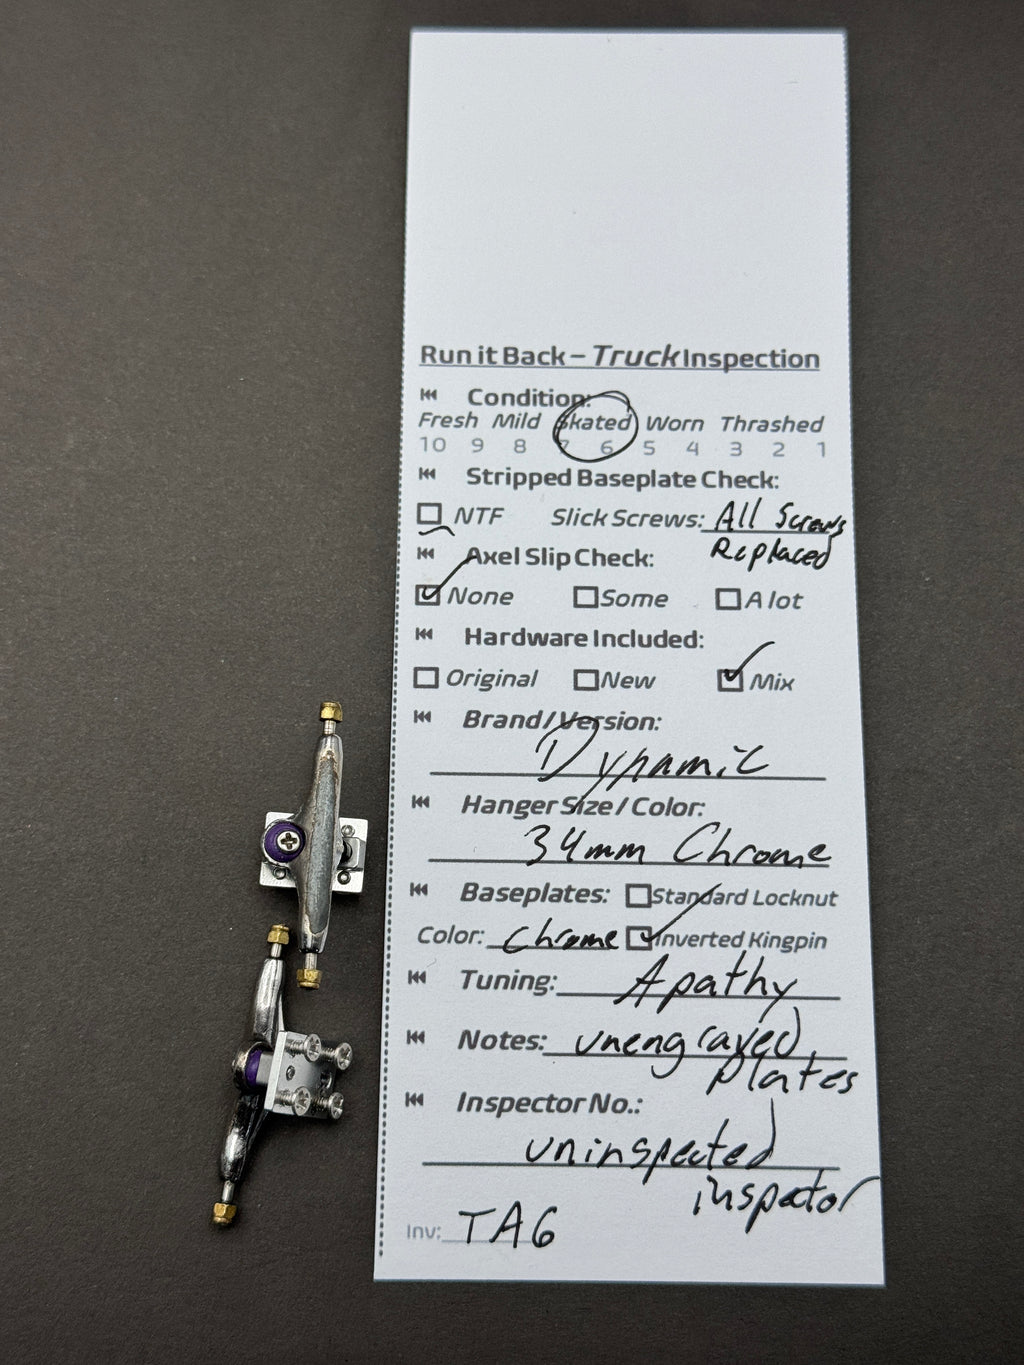 Run it Back – Truck Inspection
Condition:
Fresh Mild Skated Worn Thrashed
10 9 8 7 6 5 4 3 2 1
Stripped Baseplate Check:
NTF Slick Screws: All Screws
Replaced
Axel Slip Check:
None Some A lot
Hardware Included:
Original New Mix
Brand/Version:
Dynamic
Hanger Size/Color:
34mm Chrome
Baseplates: Standard Locknut
Color: Chrome Inverted Kingpin
Tuning: Apathy
Notes: unengraved
plates
Inspector No.:
uninspected
inspector
Inv: TA6